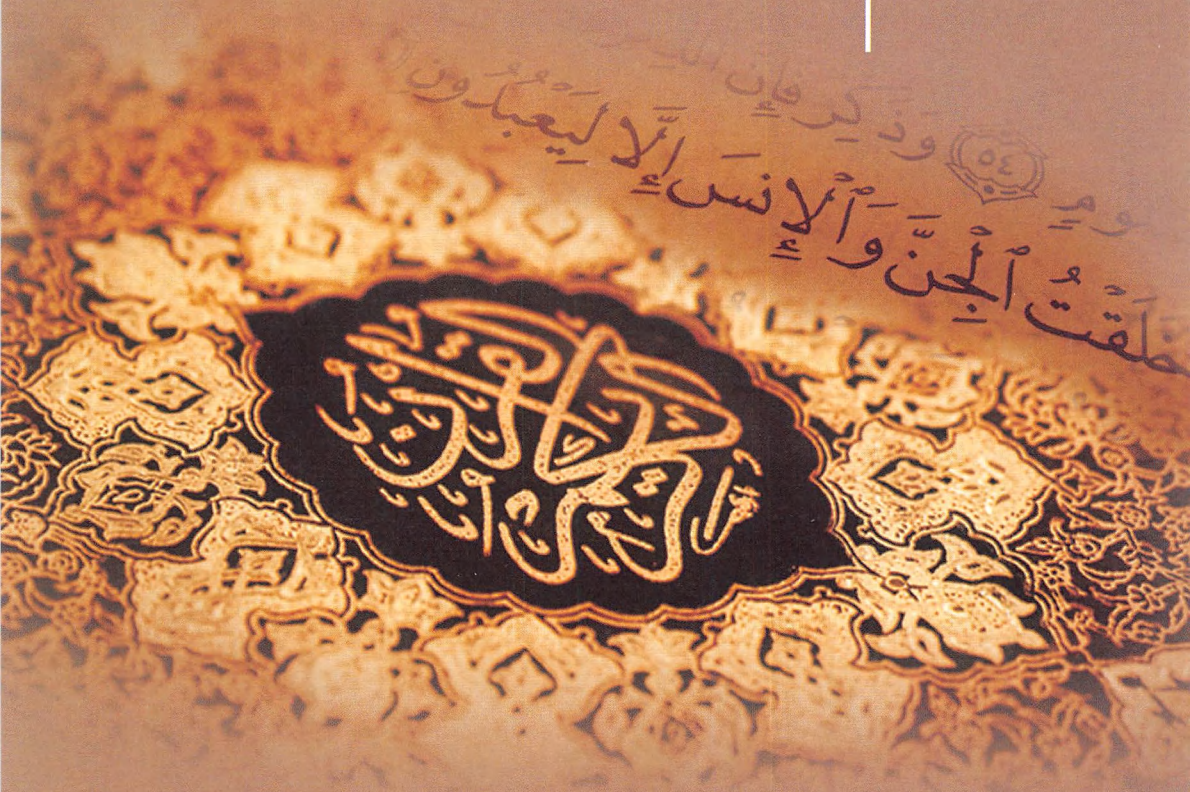 ٥٤ وَذَكِّرْ فَإِنَّ
خَلَقْتُ ٱلْجِنَّ وَٱلْإِنسَ إِلَّا لِيَعْبُدُونِ
القرآن الكريم